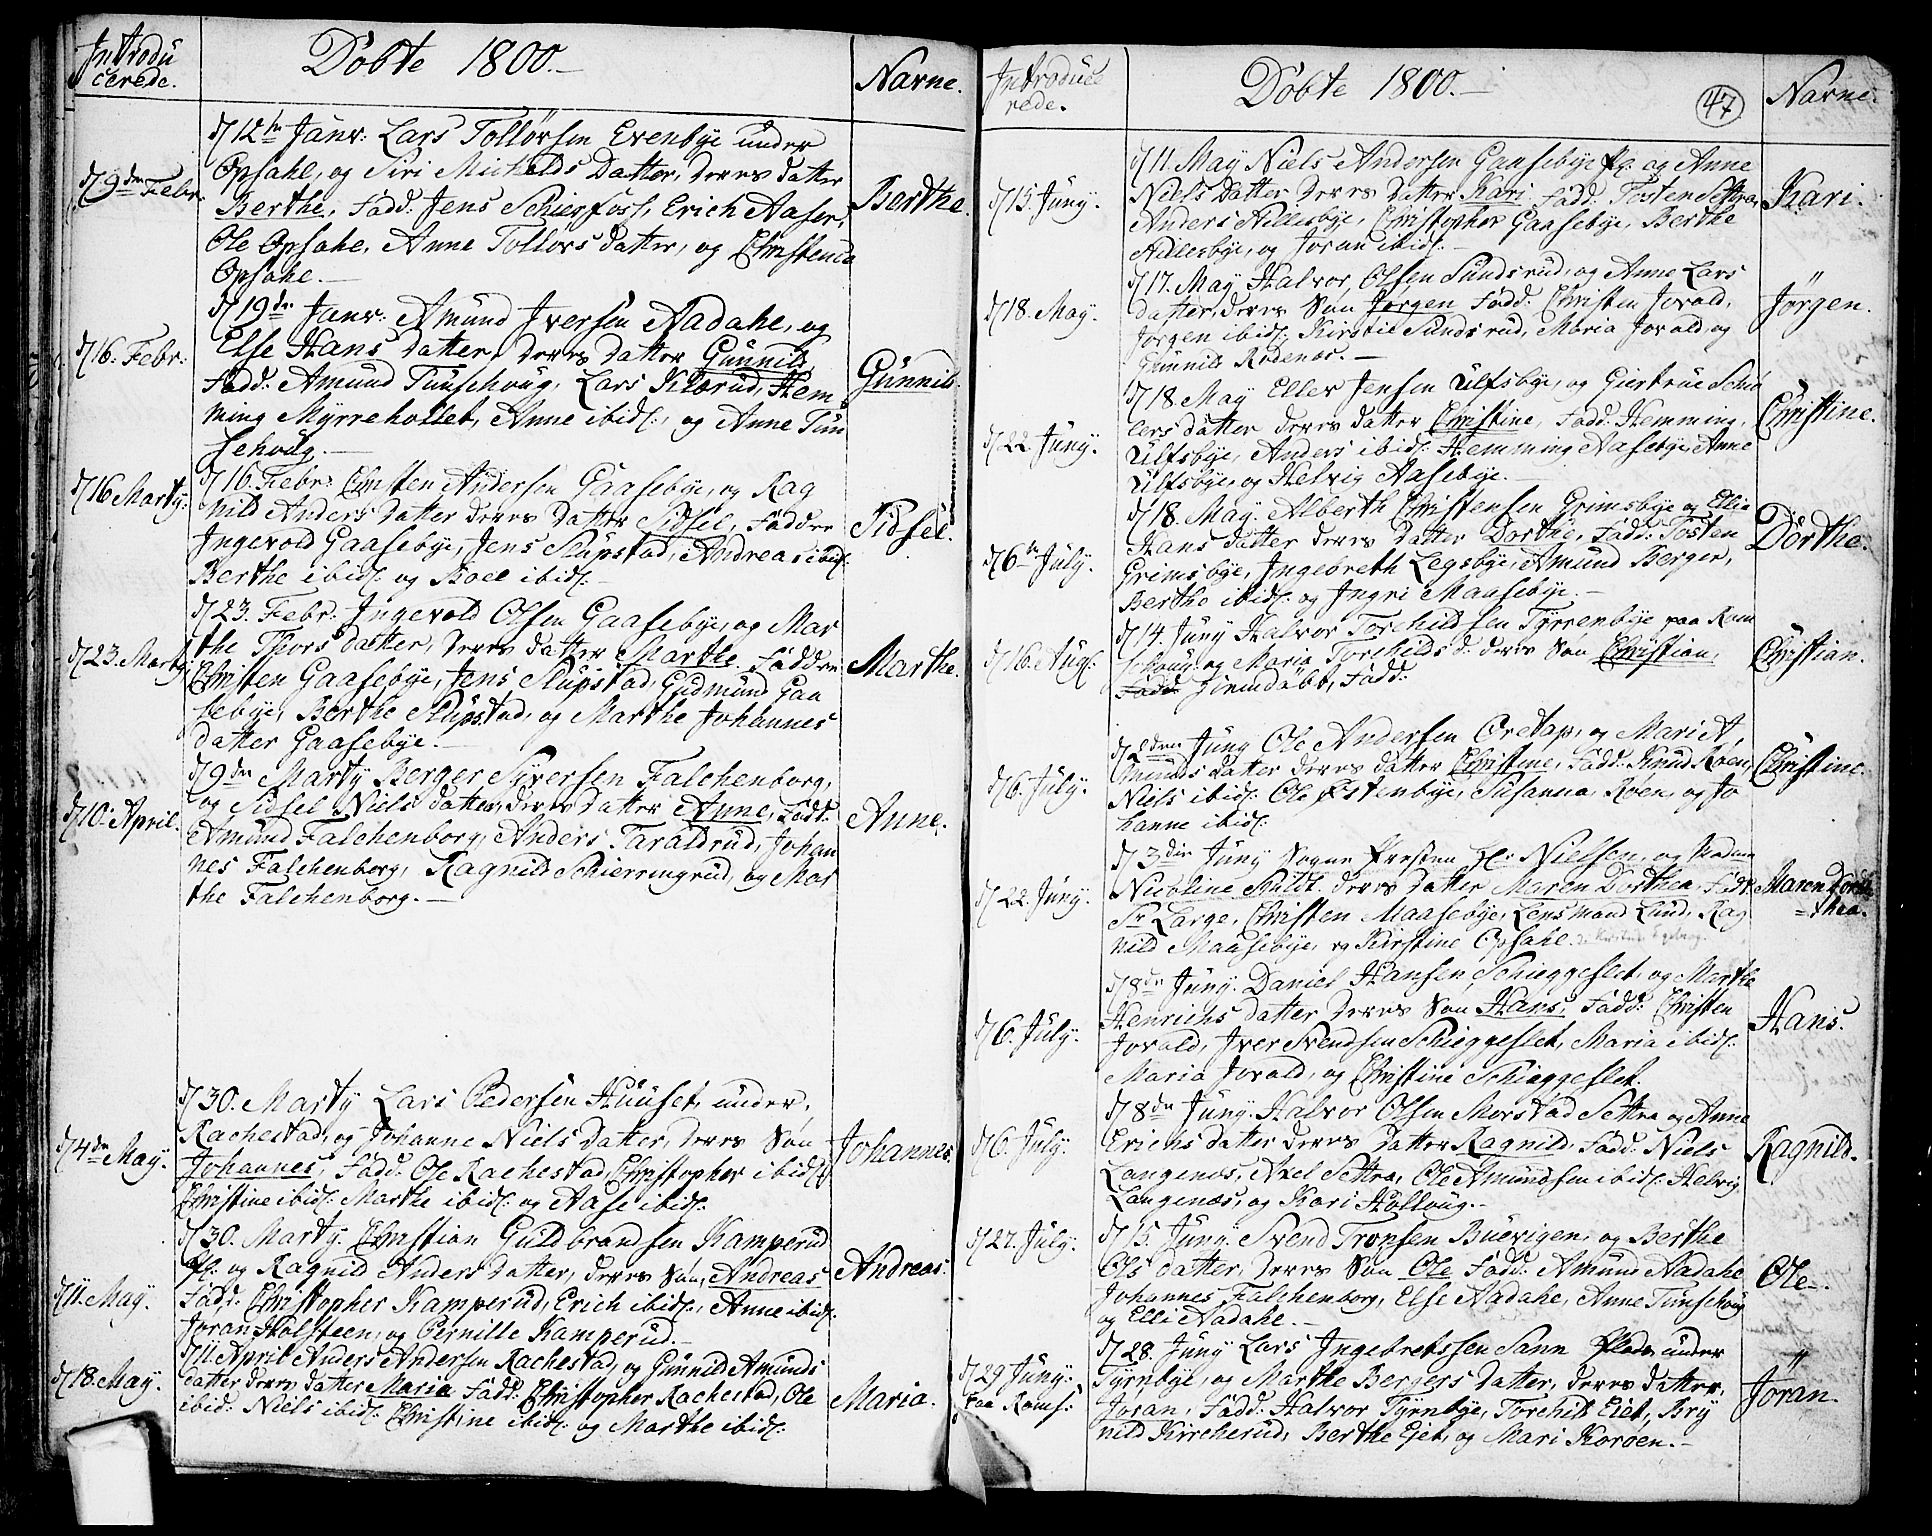 Introdu
cerede.
Döbte 1800.-
Navne.
d/9de Febr.
d/12te Janv: Lars Tollörsen Evenbye under
Opsahl, og Siri Michels Datter, deres datter
Berthe, Fadd: Jens Schierfoss, Erich Aaser,
Ole Opsahl, Anne Tollörs datter, og Christence
Opsahl.-
Berthe.
d/16: Febr:
d/19de Janv: Amund Iversen Aadahl, og
Else Hans datter, deres datter Gunnild,
Fadd: Amund Tunschoug, Lars Klarud, Hem
ming Myrreholtet, Anne ibid:, og Anne Tun
schoug.-
Gunnild.
d/16 Marty.
d/16. Febr: Christen Andersen Gaasebye, og Rag
nild Anders datter deres datter Sidsel, Faddere
Ingevold Gaasebye, Jens Slupstad, Andreas ibid:
Berthe ibid: og Boel ibid:-
Sidsel.
d/23. Marty
d/23. Febr: Ingevold Olsen Gaasebye, og Mar
the Thors datter, deres datter Marthe. Faddere
Christen Gaasebye, Jens Slupstad, Gudmund Gaa
sebye, Berthe Slupstad, og Marthe Johannes
datter Gaasebye.-
Marthe.
d/10. April.
d/9de Marty Berger Syversen Falchenborg,
og Sidsel Niels datter, deres datter Anne, Fadd:
Amund Falchenborg, Anders Taraldrud, Johan
nes Falchenborg, Ragnild Schierringrud, og Mar
the Falchenborg.-
Anne.
d/4de May.
d/30. Marty Lars Pedersen Huuset, under
Rachestad, og Johanne Niels datter, deres Sön
Johannes, Fadd: Ole Rachestad, Christopher ibid:
Christine ibid: Marthe ibid: og Aase ibid:
Johannes.
d/11. May.
d/30. Marty. Christian Guldbrandsen Kamperud
Pl: og Ragnild Anders datter, deres Sön, Andreas
Fadd: Christopher Kamperud, Erich ibid:, Anne ibid:
Joran Holsteen, og Pernille Kamperud.-
Andreas.
d/18. May.
d/11. April Anders Andersen Rachestad, og Gunnild Amunds
datter deres datter Maria Fadd: Christopher Rachestad, Ole
ibid: Niels ibid: Christine ibid: og Marthe ibid:
Maria.
Introduce
rede.
Döbte 1800.-
47
Navne.
d/15. Juny.
d/11. May Niels Andersen Gaasebye Pl: og Anne
Niels datter deres datter Kari. Fadd: Tosten Settra,
Anders Adlesbye, Christopher Gaasebye, Berthe
Adlesbye, og Joran ibid:-
Kari.
d/18. May.
d/17. May Halvor Olsen Sundsrud, og Anne Lars
datter, deres Sön Jörgen Fadd: Christen Jovald,
Jörgen ibid: Kirstie Sundsrud, Maria Jovald og
Gunnild Rödenæs.-
Jörgen.
d/22 Juny.
d/18. May Eller Jensen Ulfsbye, og Giertrue Schü
lers datter deres datter Christine, Fadd: Hemming
Ulfsbye, Anders ibid: Hemming Aasebye, Anne
Ulfsbye, og Helvig Aasebye.-
Christine.
d/6te July.
d/18. May. Alberth Christensen Grimsbye og Ellie
Hans datter deres datter Dorthe, Fadd: Tosten
Grimsbye, Ingebreth Legsbye, Amund Berger,
Berthe ibid: og Ingri Maasebye.-
Dorthe.
d/16. Aug:
d/14. Juny Halvor Torchildsen Tyrrenbye paa Rom
schoug og Maria Torchilds d: deres Sön Christian,
Fadd Hiemdöbt, Fadd:
Christian.
d/6. July.
d/2den Juny Ole Andersen Oretop, og Mari A,
munds datter deres datter Christine, Fadd: Knud Roen,
Niels ibid: Ole Østenbye, Susanna Roen, og Jo
hanne ibid:
Christine.
d/22. Juny.
d/3die Juny Sogne Præsten Hr: Nielsen, og Madame
Nicoline Buldt. deres datter Maren Dorthea, Fadd:
Sr Large, Christen Maasebye, Lensmand Lund, Rag
nild Maasebye, og Kirstine Opsahl.
Maren Dor
=thea.
d/6. July.
d/8de Juny. Daniel Hansen, Schieggeslet, og Marthe
Henrichs datter deres Sön Hans, Fadd: Christen
Jovald, Iver Svendsen Schieggeslet, Maria ibid:
Maria Jovald, og Christine Schieggeslet.
Hans.
d/6. July.
d/8de Juny. Halvor Olsen Morstad Settra og Anne
Erichs datter deres datter Ragnild, Fadd: Niels
Langenæs, Axel Settra, Ole Amundsen ibid: Helvig
Langenæs, og Kari Holtoug.-
Ragnild.
d/27. July.
d/15. Juny. Svend Tronsen Buevigen, og Berthe
Ols datter, deres Sön Ole Fadd: Amund Aadahl
Johannes Falchenborg, Else Aadahl, Anne Tunschoug
og Elli Aadahl.-
Ole.
d/29 Juny.
paa Romsk:
d/28. Juny Lars Ingebretssen Sann Plads under
Tyrnbye, og Marthe Bergers datter, deres datter,
Joran, Fadd: Halvor Tyrnbye, Torchild Eiet, Bry
nild Kircherud, Berthe Ejet, og Mari Koröen.-
Joran.